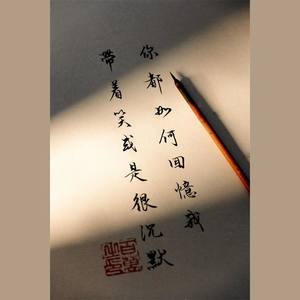 你都如何回憶我
帶着笑或是很沉默